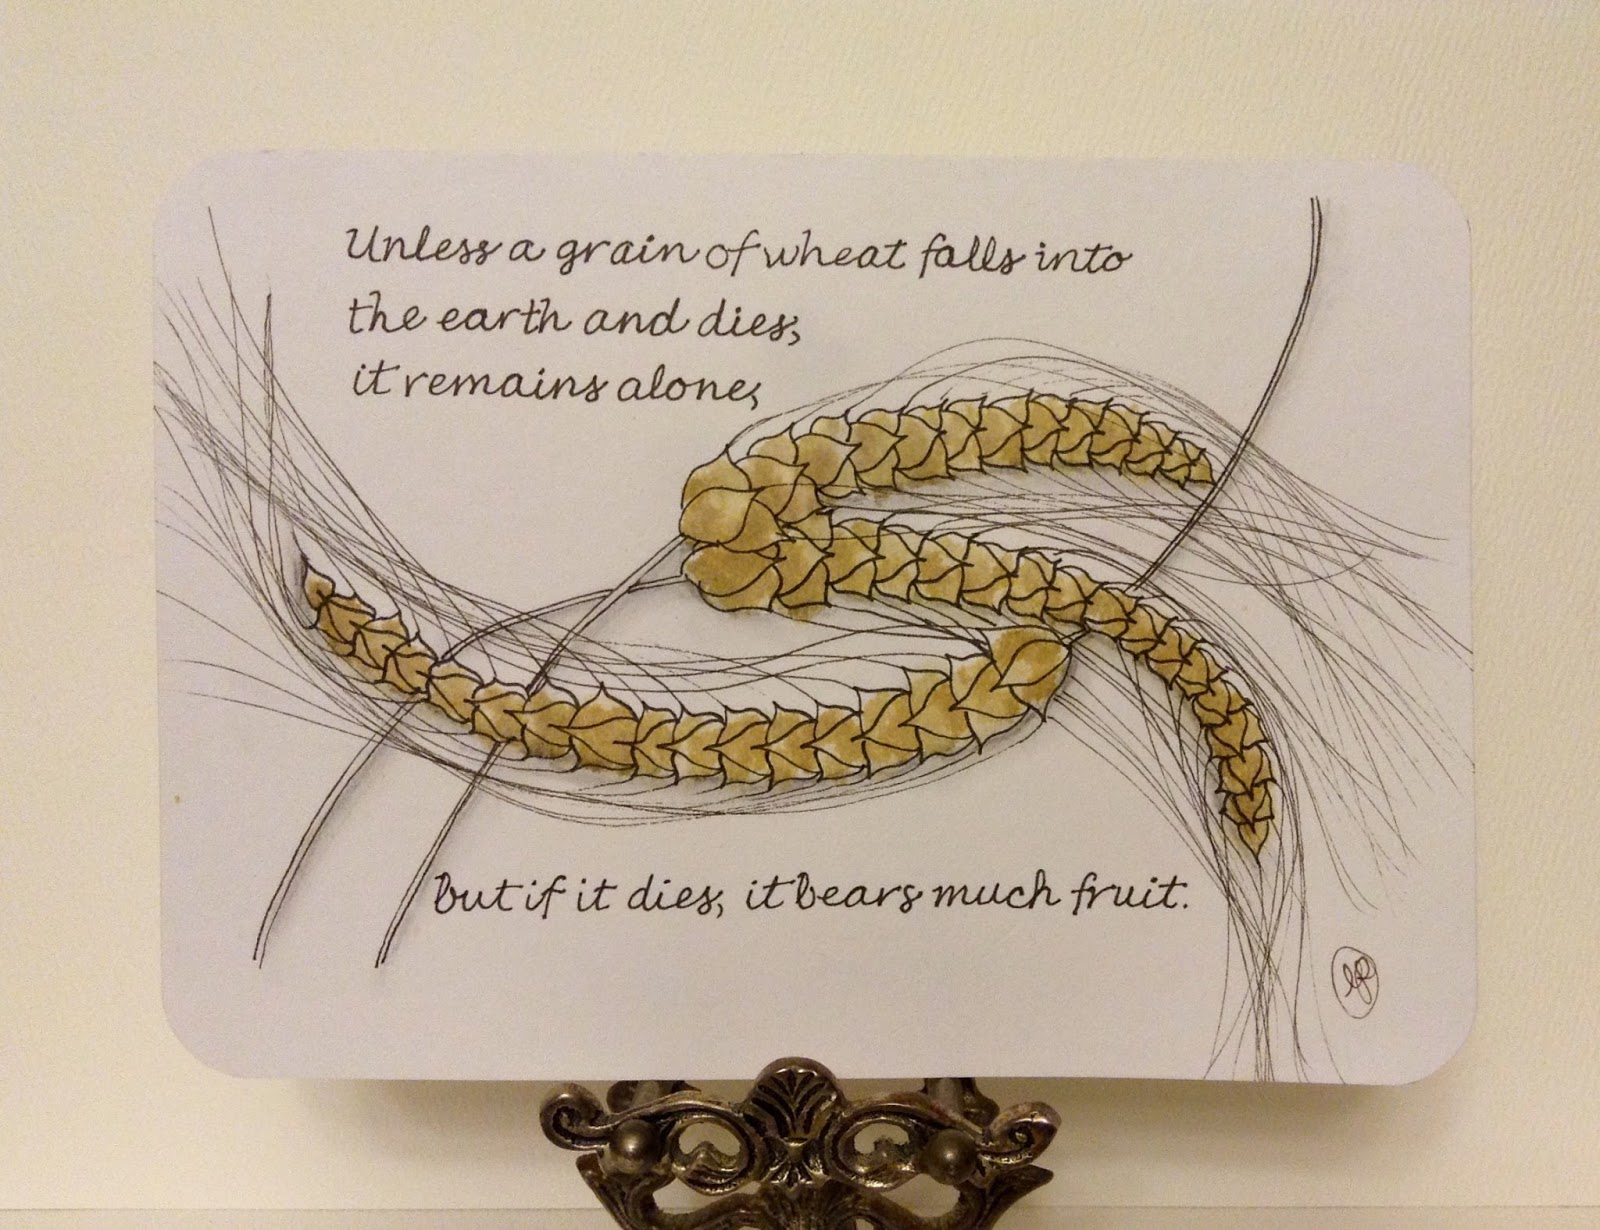 Unless a grain of wheat falls into
the earth and dies,
it remains alone,
but if it dies, it bears much fruit.